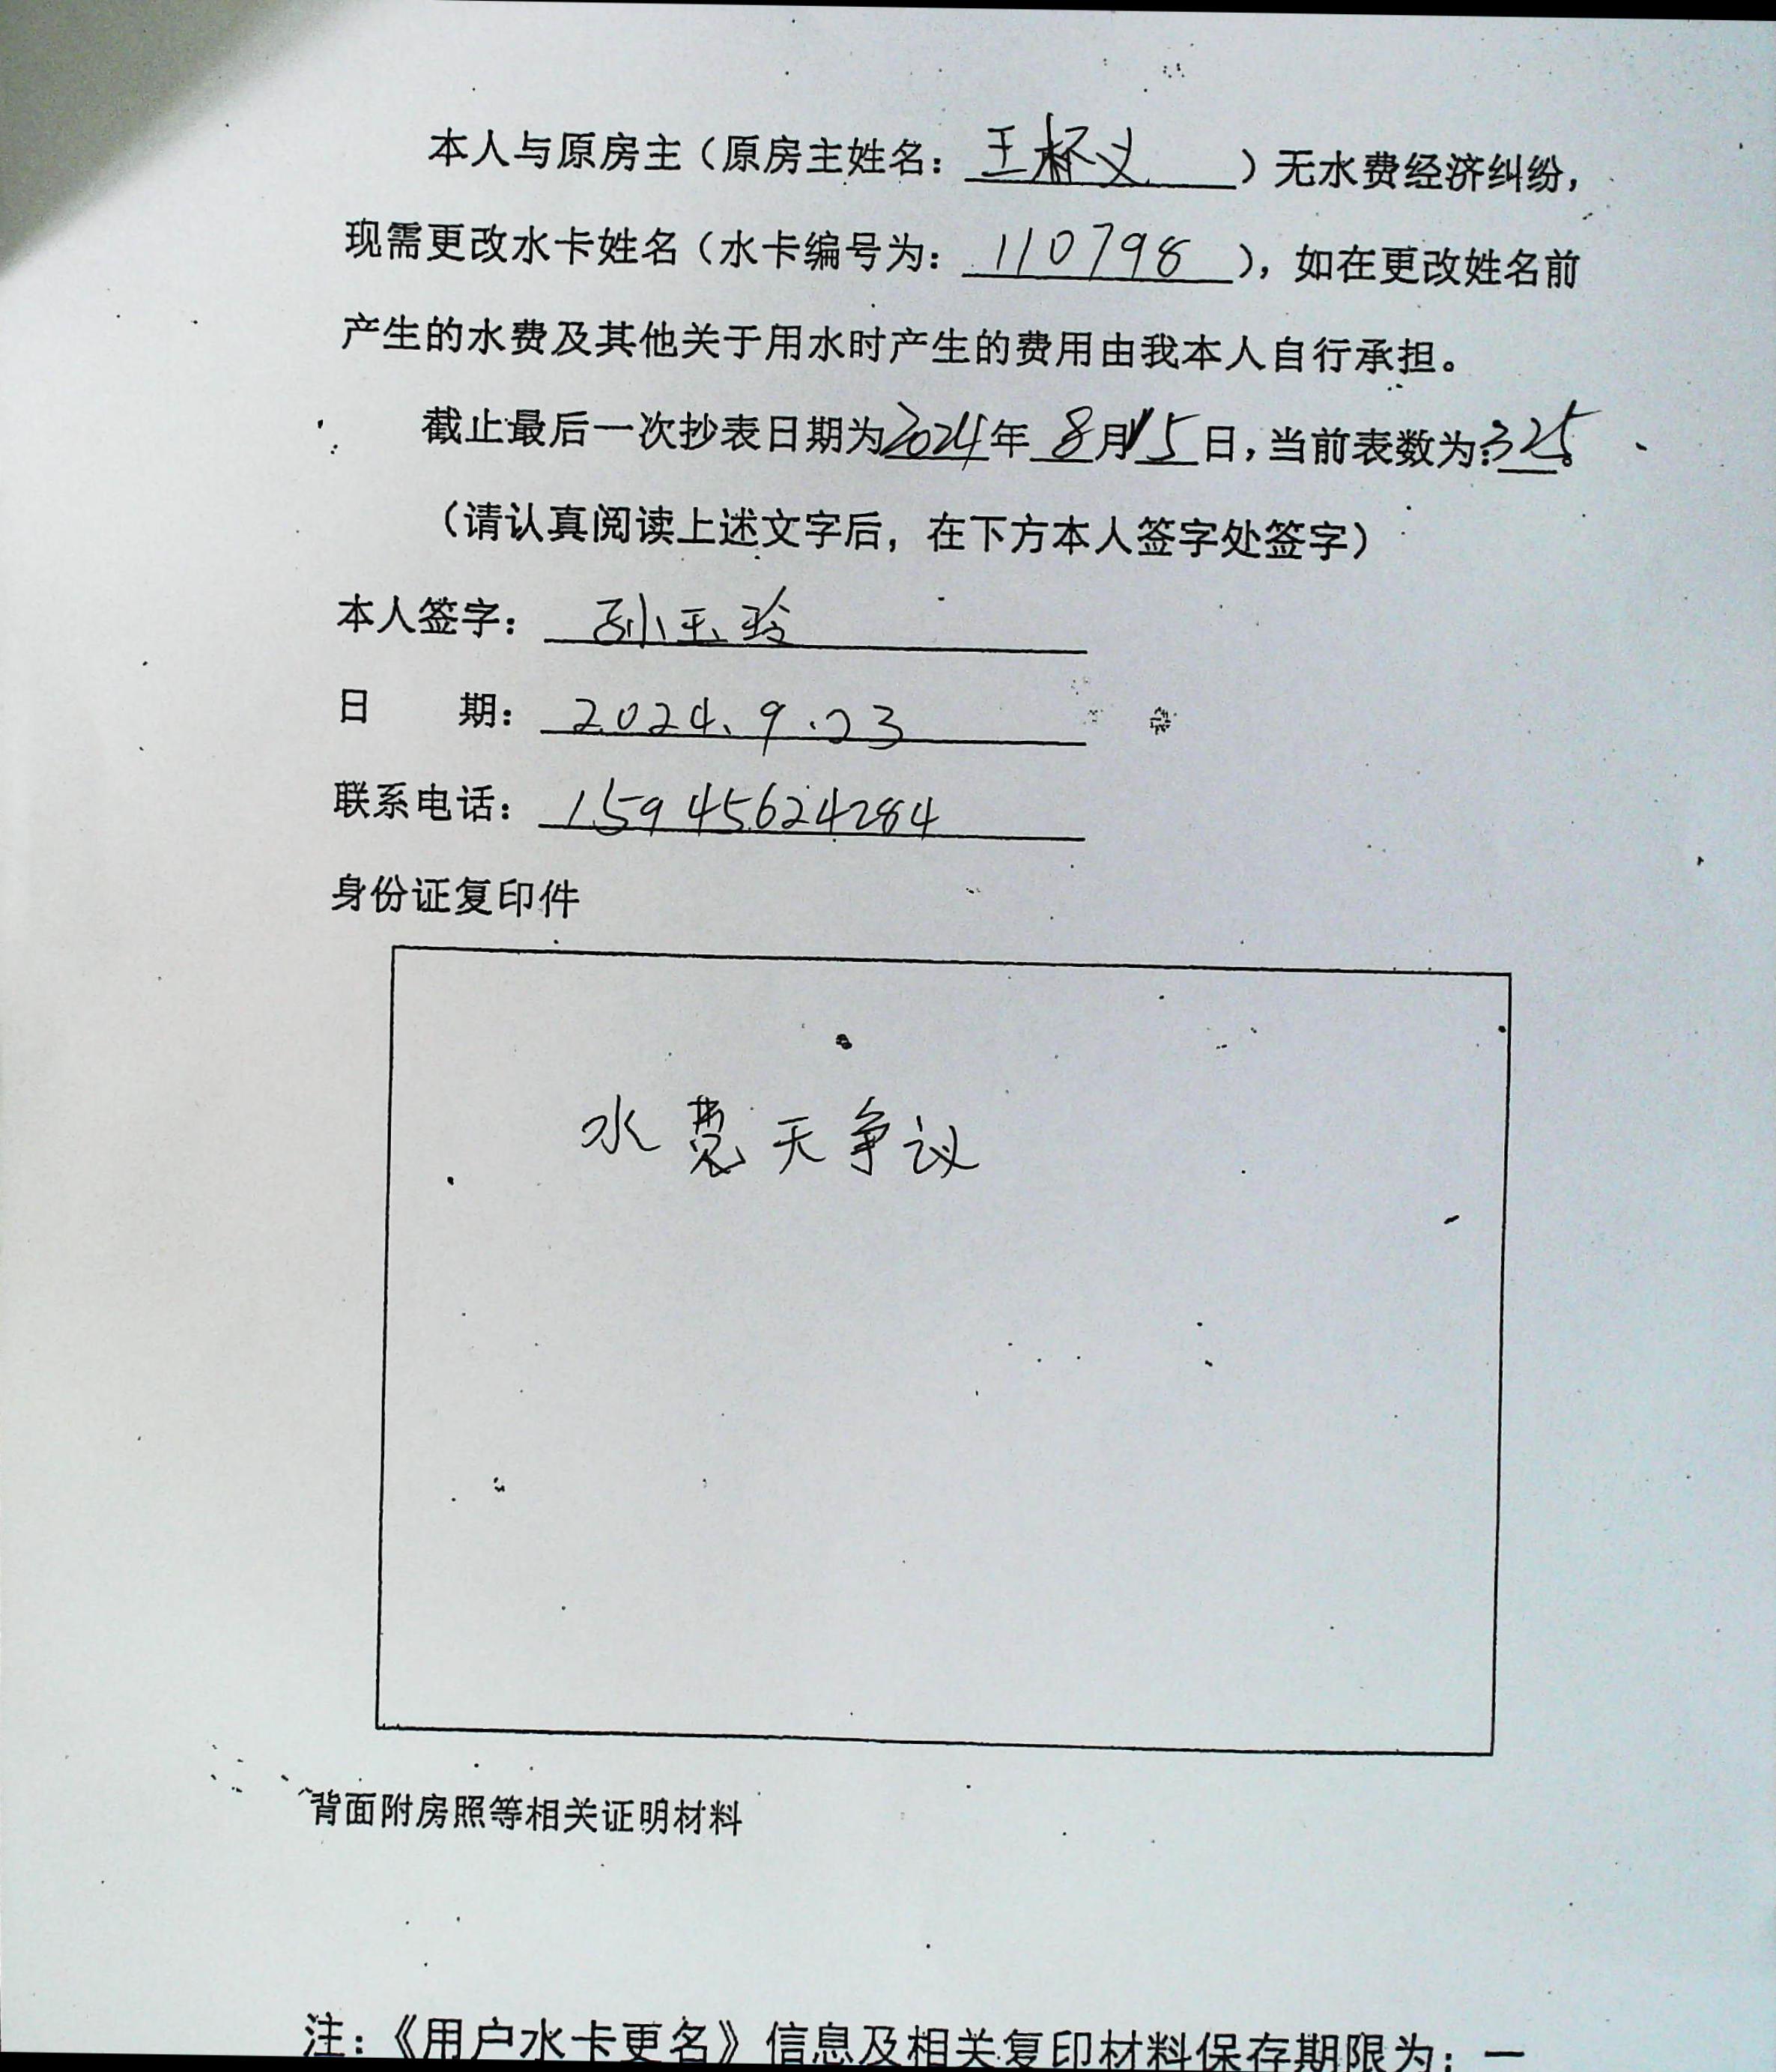 本人与原房主（原房主姓名：王怀义）无水费经济纠纷，
现需更改水卡姓名（水卡编号为：110798），如在更改姓名前
产生的水费及其他关于用水时产生的费用由我本人自行承担。
截止最后一次抄表日期为2024年8月15日，当前表数为：325。
（请认真阅读上述文字后，在下方本人签字处签字）
本人签字：孙玉玲
日 期：2024.9.23
联系电话：15945624284
身份证复印件
水费无争议
背面附房照等相关证明材料
注：《用户水卡更名》信息及相关复印材料保存期限为：一